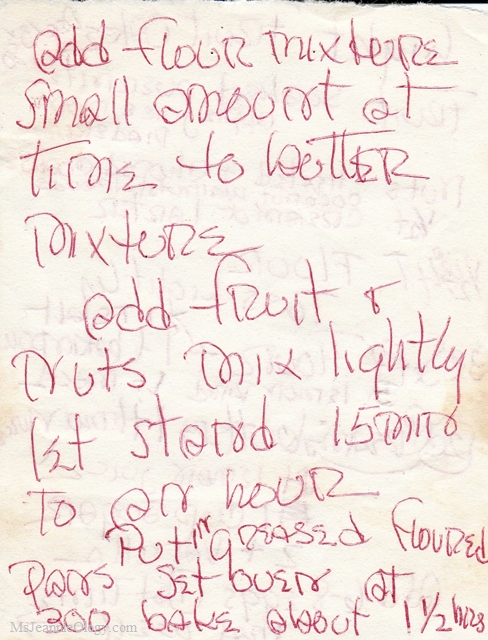 add flour mixture
small amount at
time to butter
mixture
add fruit &
nuts, mix lightly
let stand 15 min
to an hour
Put in greased floured
pans set oven at
bake about 1 1/2 hrs
MsJeannieOlogy.com